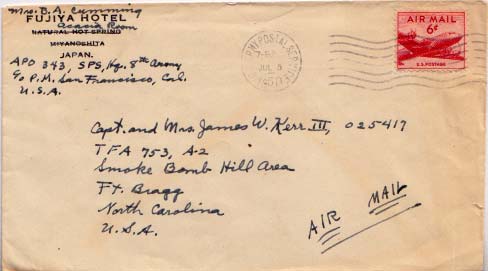 Mrs. B.A. Cumming
FUJIYA HOTEL
Acacia Room
NATURAL HOT SPRING
MIYANOSHITA
JAPAN.
APO 343, SPS, Hq. 8th Army
c/o P.M. San Francisco, Cal.
U.S.A.
POSTAL SERVICE
JUL 5
AIR MAIL
6¢
U.S. POSTAGE
Capt. and Mrs. James W. Kerr III, 025417
TFA 753, A-2
Smoke Bomb Hill Area
Ft. Bragg
North Carolina
U.S.A.
AIR MAIL